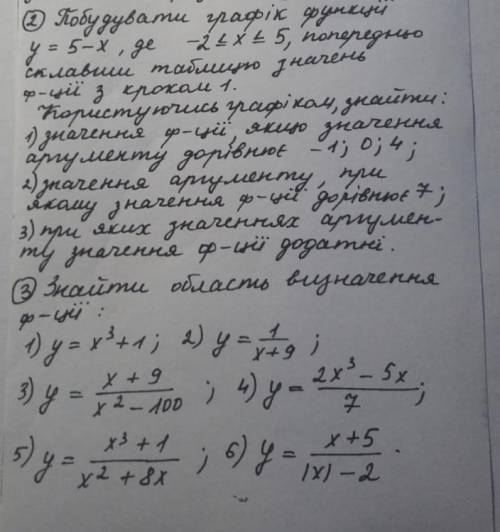 ② Побудувати графік функції
y = 5-x, де -2 ≤ x ≤ 5, попередньо
склавши таблицю значень
ф-ції з кроком 1.
Користуючись графіком, знайти:
1) значення ф-ції, якщо значення
аргументу дорівнює -1; 0; 4;
2) значення аргументу, при
якому значення ф-ції дорівнює 7;
3) при яких значеннях аргумен-
ту значення ф-ції додатні.
③ Знайти область визначення
ф-ції:
1) y = x³+1; 2) y = 1/(x+9);
3) y = (x+9)/(x²-100); 4) y = (2x³-5x)/7;
5) y = (x³+1)/(x²+8x); 6) y = (x+5)/(|x|-2).